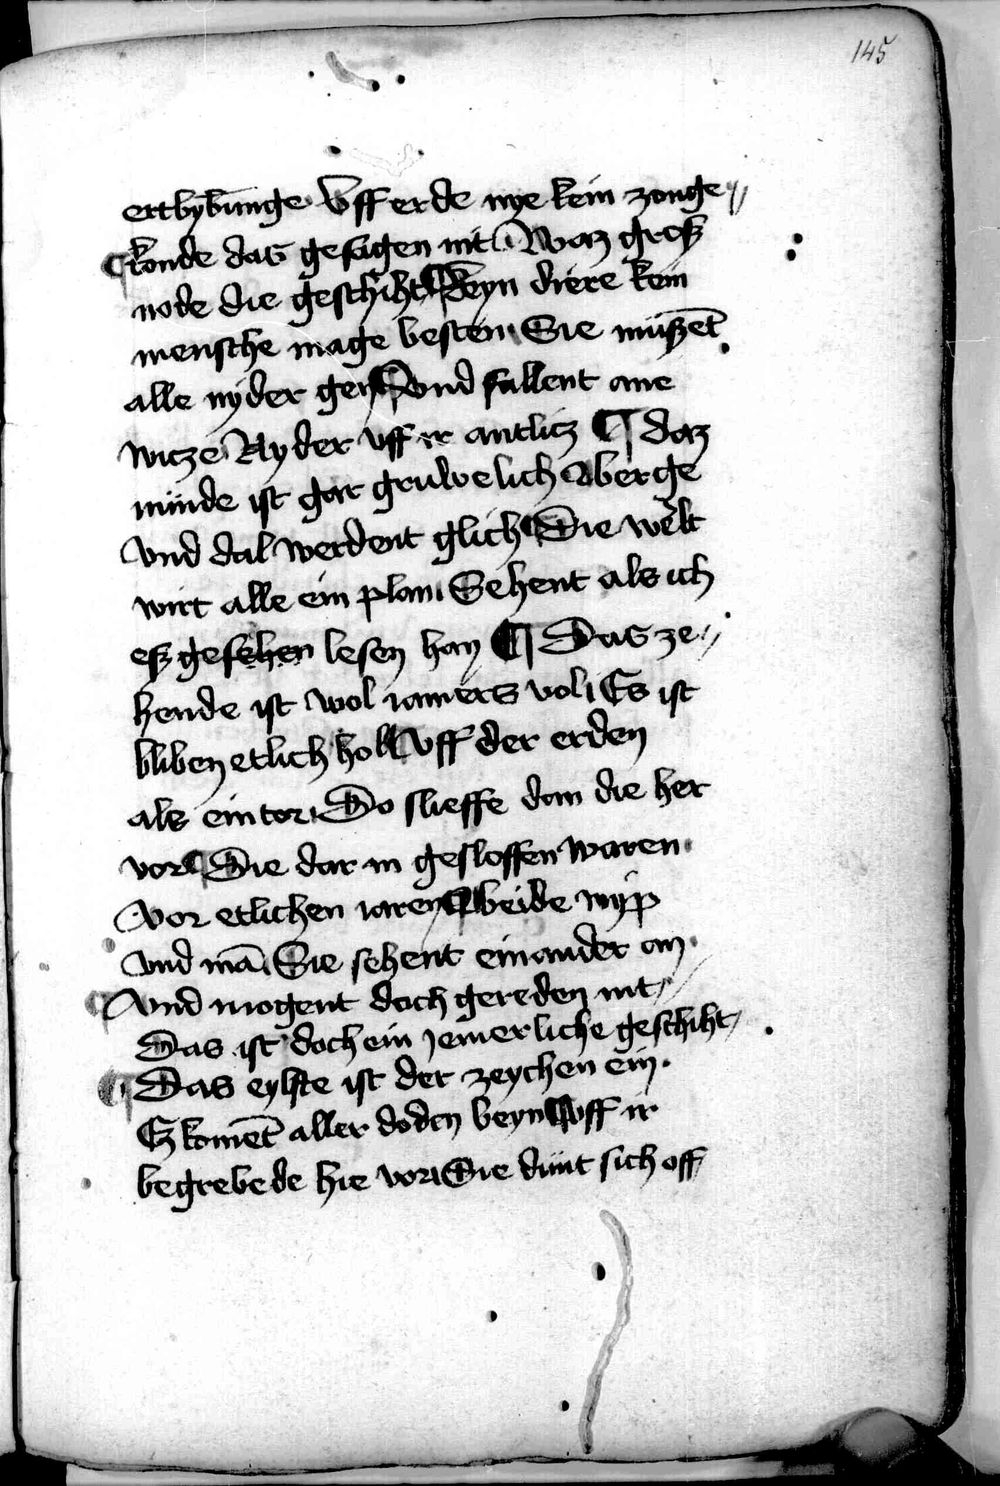 145
ertbybunge Vff erde nye kein zonge
konde das gesagen nit Waz groß
node die geschiht Keyn diere kein
mensche mage besten Sie mußēt
alle nyder gen vnd fallent ane
witze Nyder vff ir antlitz ¶ daz
nunde ist gar gruwelich berge
vnd dal werdent glich Die welt
wirt alle ein plan Sehent als ich
eß gesehen lesen han ¶ Das ze
hende ist wol iamers vol Es ist
bliben etlich hol vff der erden
als ein tor Do slieffe dan die her
vor Die dar in gesloffen waren
vor etlichen iaren beide wyp
vnd mā Sie sehent einander an
¶ Vnd mogent doch gereden nit
Das ist doch ein jemerliche geschiht
¶ Das eylfte ist der zeychen ein
Eß komēt aller doden beyn vff ir
begrebede hie vor Sie dunt sich off